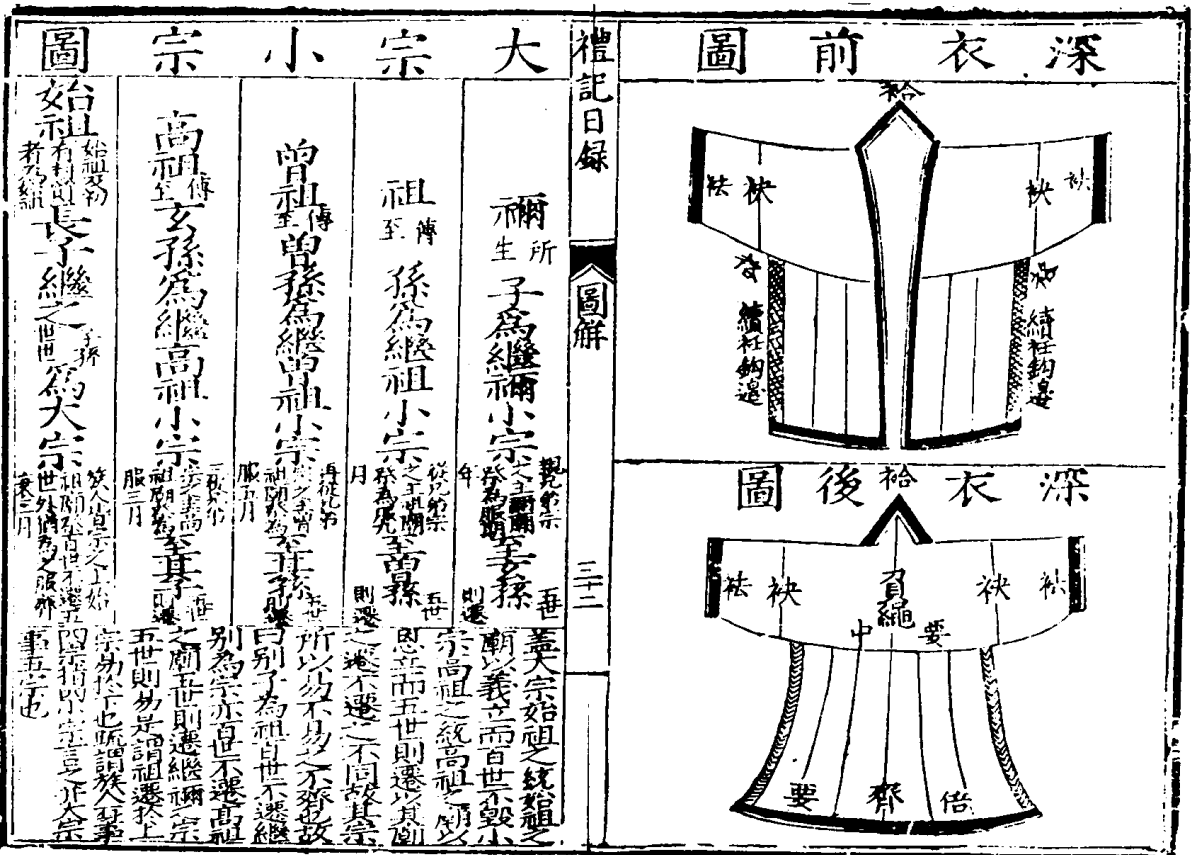 深衣前圖
袷
袂
袪
袂
袪
續衽鈎邊
續衽鈎邊
深衣後圖
袷
袪
袂
負繩
袂
袪
要中
倍齊要
禮記目録
圖解
三十二
大宗小宗圖
禰所生子為繼禰小宗親兄弟宗之主禰廟祭為服期年至玄孫五世則遷
祖傳至孫為繼祖小宗從兄弟宗之主祖廟祭為服九月至曽孫五世則遷
曽祖傳至曽孫為繼曽祖小宗再從兄弟宗之主曽祖廟祭為服五月至孫五世則遷
高祖傳至玄孫為繼高祖小宗三從兄弟宗之主高祖廟祭為服三月至子五世則遷
始祖長子繼之子孫世世為大宗族人皆宗之主始祖廟祭百世不遷五世外皆為之服齊衰三月
蓋大宗始祖之統始祖之
廟以義立而百世不毀小
宗高祖之統高祖之廟以
恩立而五世則遷以其廟
之遷不遷之不同故其宗
所以易不易之不齊也故
曰别子為祖百世不遷繼
别為宗亦百世不遷高祖
之廟五世則遷繼禰之宗
五世則易是謂祖遷於上
宗易於下也疏謂族人
四宗指四小宗言之并大宗
事五宗也